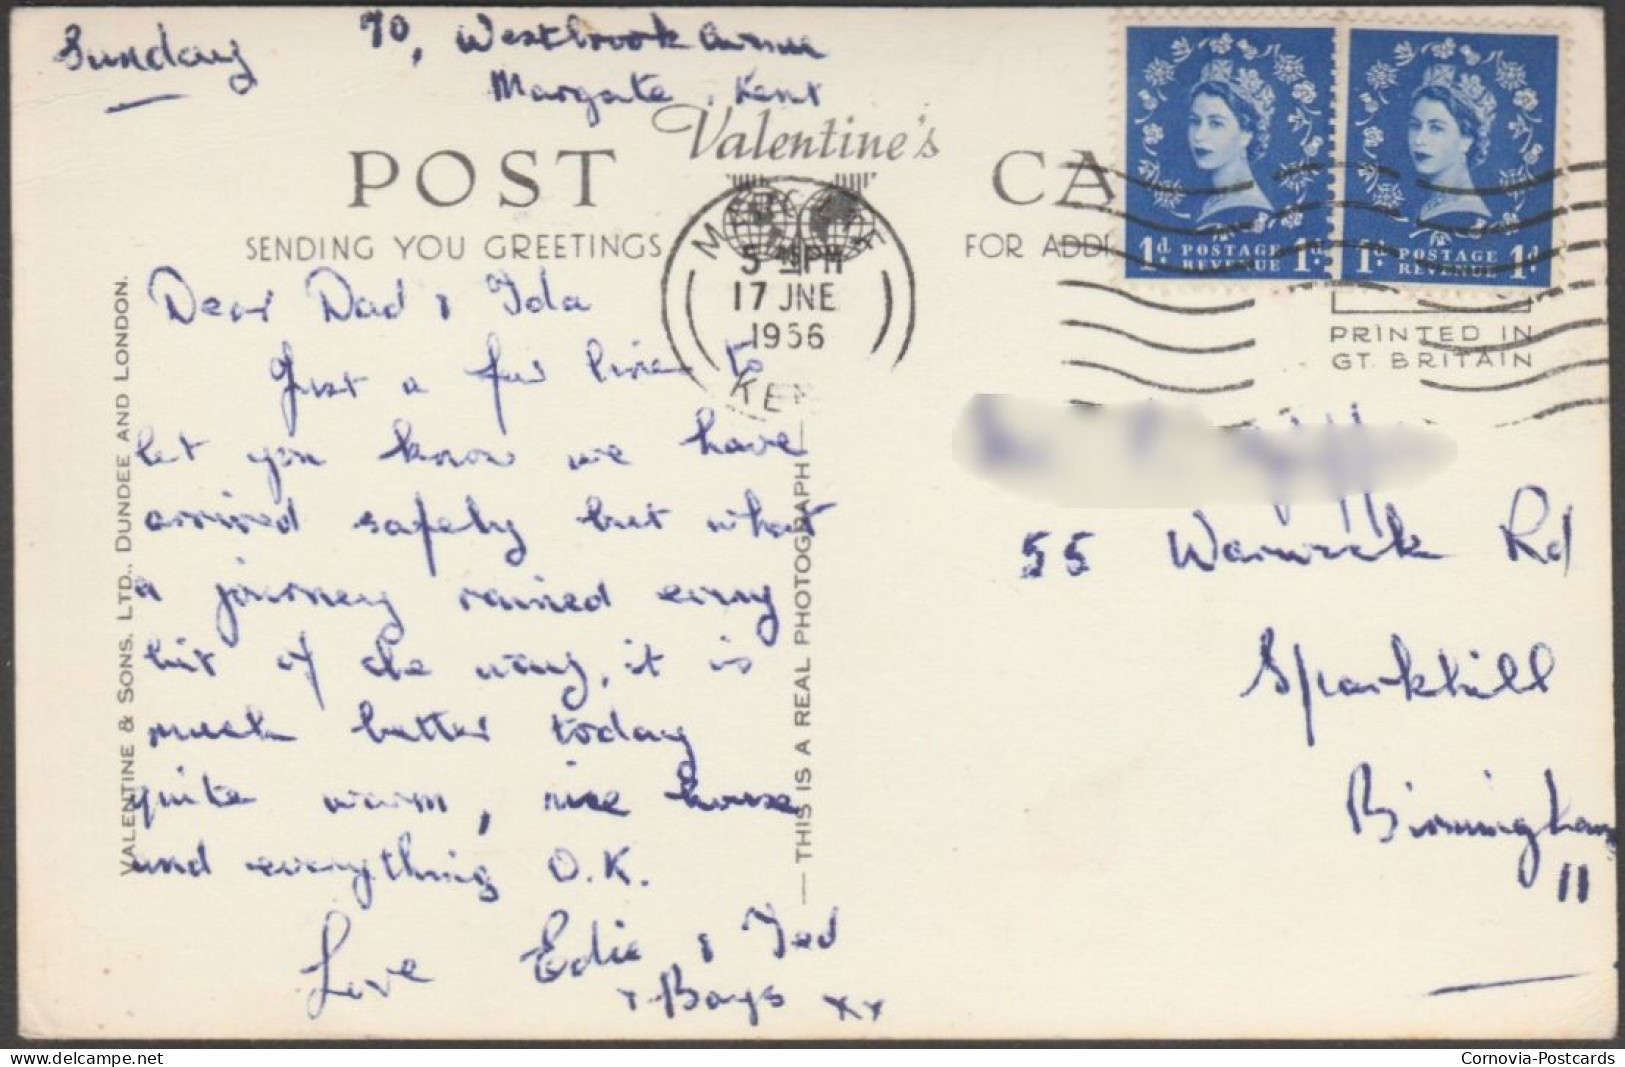 Sunday
70, Westbrook Avenue
Margate, Kent
POST CA
Valentine's
SENDING YOU GREETINGS
FOR ADD
MARGATE
5 45 PM
17 JNE
1956
KENT
1d. POSTAGE REVENUE 1d.
1d. POSTAGE REVENUE 1d.
PRINTED IN
GT. BRITAIN
Dear Dad & Ida
Just a few lines to
let you know we have
arrived safely but what
a journey rained every
bit of the way, it is
much better today
quite warm, nice house
and everything O.K.
Love Edie & Ted
+ Boys xx
VALENTINE & SONS, LTD., DUNDEE AND LONDON.
THIS IS A REAL PHOTOGRAPH
55 Warwick Rd
Sparkhill
Birmingham
11
Cornovia-Postcards